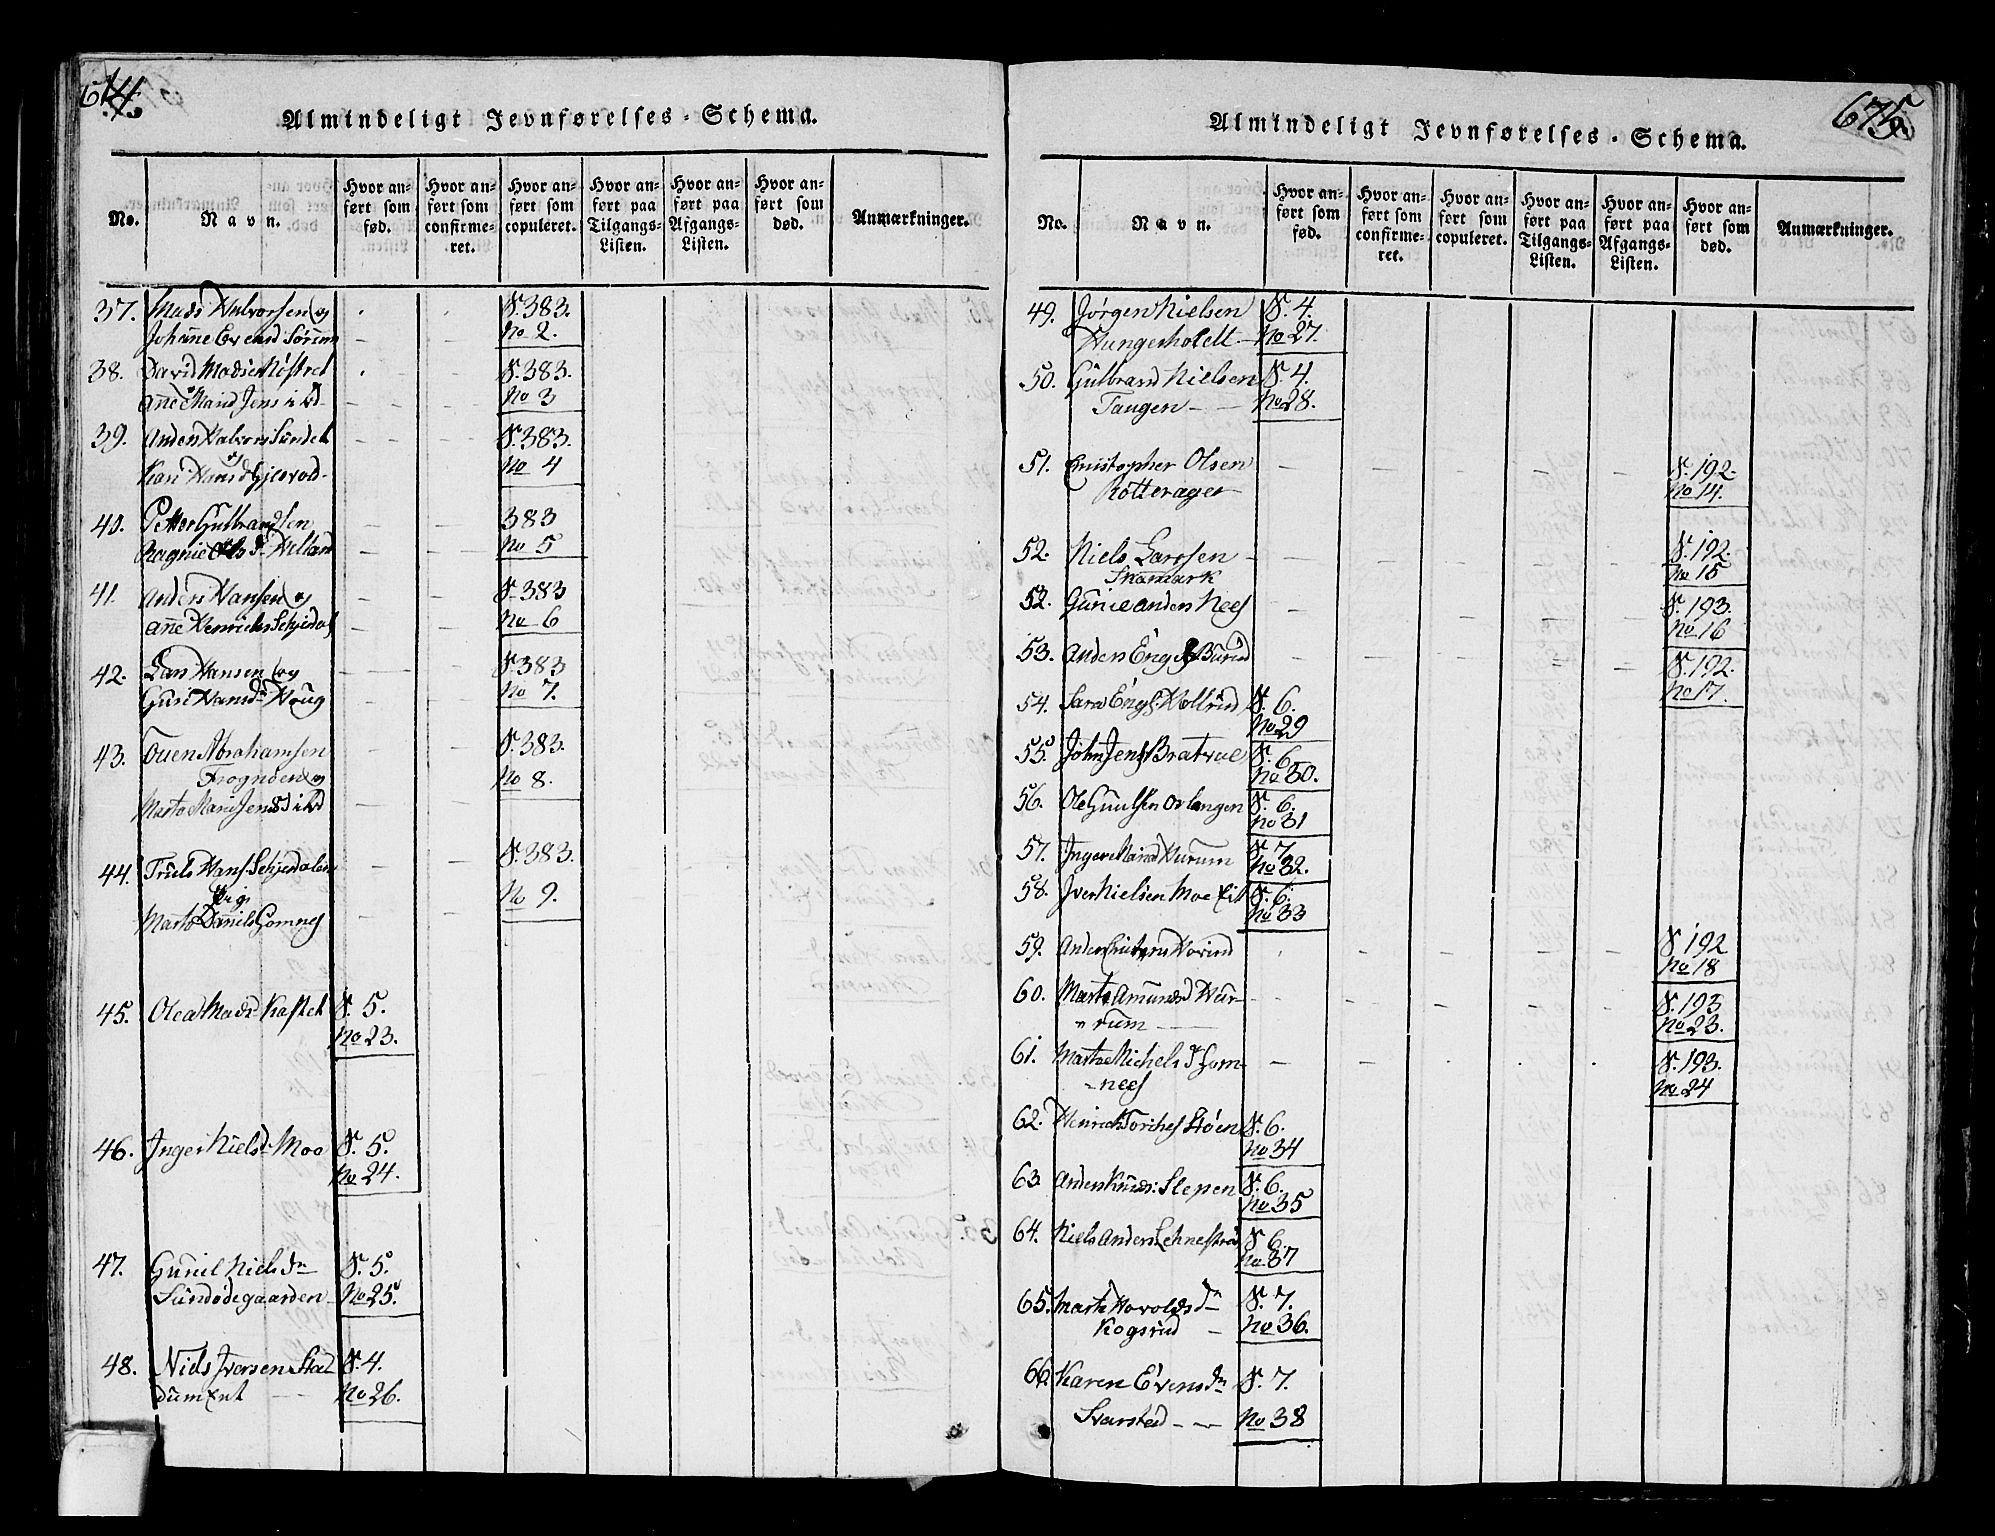 Almindeligt Jevnførelses-Schema.
No. Navn. Hvor anført som fød. Hvor anført som confirmeret. Hvor anført som copuleret. Hvor anført paa Tilgangs-Listen. Hvor anført paa Afgangs-Listen. Hvor anført som død. Anmærkninger.
37. Mads Halvorsen og S. 383.
Johanne Evensd No 2.
38. David Madsen S. 383.
Anne Marie Jens No 3
39. Anders Halvors S. 383.
Kari Hansd No 4
40. Petter Gulbrandsen 383
Ragnie Ols d. No 5
41. Anders Hansen og S. 383
Anne Henrichs No 6
42. Lars Hansen og S. 383
Guri Hansdr Houg No 7.
43. Ouen Abrahamsen S. 383.
Frognøen og No 8.
Marte Marie Jensd
44. Truls Hans. Schjerdalen S. 383.
og
Marte Daniels Gomnes No 9.
45. Olea Mads S. 5.
No 23.
46. Inger Nielsd Moe S. 5.
No 24.
47. Gunil Nielsdr S. 5.
Sundødegaarden No 25.
48. Niels Iversen S. 4.
No 26.
675
Almindeligt Jevnførelses-Schema.
No. Navn. Hvor anført som fød. Hvor anført som confirmeret. Hvor anført som copuleret. Hvor anført paa Tilgangs-Listen. Hvor anført paa Afgangs-Listen. Hvor anført som død. Anmærkninger.
49. Jørgen Nielsen S. 4.
Hungerholdt No 27.
50. Gulbrand Nielsen S. 4.
Tangen No 28.
51. Christopher Olsen S. 192.
Rotterager No 14.
52. Niels Larssen S. 192.
No 15
52. Gunie Anders Nees S. 193.
No 16
53. Anders S. 192.
No 17.
54. Sara S. 6.
No 29
55. John Jens S. 6.
No 30.
56. Ole S. 6.
No 31
57. Inger Marie Hurum S. 7.
No 32.
58. Iver Nielsen Moe S. 6.
No 33
59. Anders S. 192
No 18
60. Marte Amundsd Hur- S. 193
rum No 23.
61. Marte Michels dr Gom- S. 193.
nees No 24
62. Henrich Støen S. 6.
No 34
63. Anders Knuds: S. 6.
No 35
64. Niels Anders S. 6.
No 37
65. Marte S. 7.
Kogsrud No 36.
66. Karen Evensdr S. 7.
Svarstad No 38